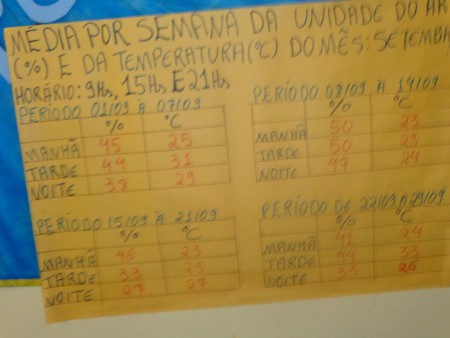 MÉDIA POR SEMANA DA UNIDADE DO AR
(%) E DA TEMPERATURA (°C) DO MÊS: SETEMB
HORÁRIO: 9Hs, 15Hs E 21Hs
PERÍODO 01/09 À 07/09
% °C
MANHÃ 45 25
TARDE 44 31
NOITE 38 29
PERÍODO 08/09 A 14/09
% °C
MANHÃ 50 23
TARDE 50 29
NOITE 47 24
PERÍODO 15/09 À 21/09
% °C
MANHÃ 46 23
TARDE 33 29
NOITE 27 27
PERÍODO DE 22/09 A 29/09
% °C
MANHÃ 41 24
TARDE 44 33
NOITE 35 26